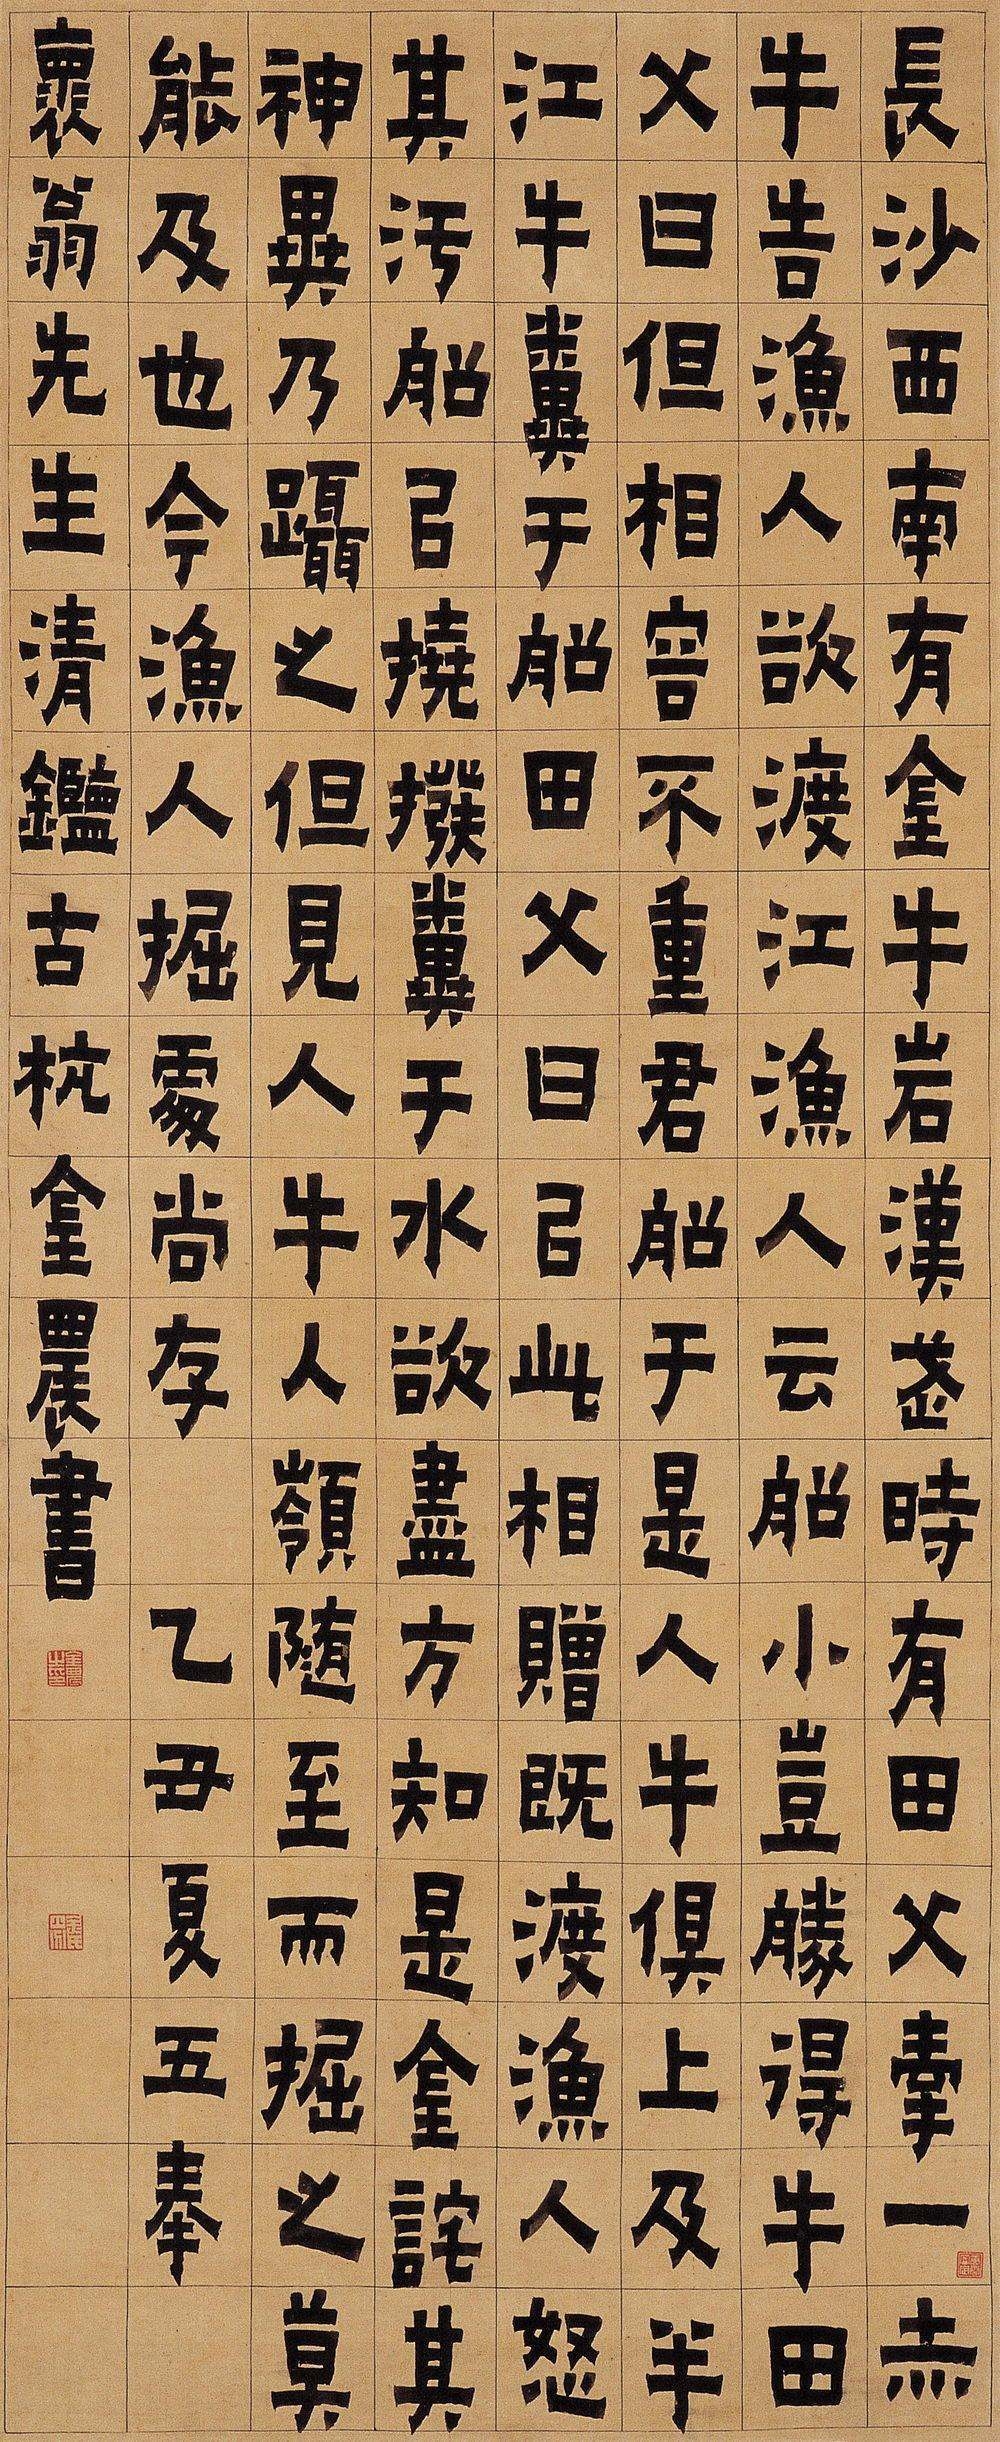 長沙西南有金牛岩漢武時有田父牽一赤
牛告漁人欲渡江漁人云船小豈勝得牛田
父曰但相容不重君船于是人牛俱上及半
江牛糞于船田父曰以此相贈既渡漁人怒
其汚船以撓撥糞于水欲盡方知是金詫其
神異乃躡之但見人牛人嶺随至而掘之莫
能及也今漁人掘處尚存　乙丑夏五奉
襄翁先生清鑑古杭金農書